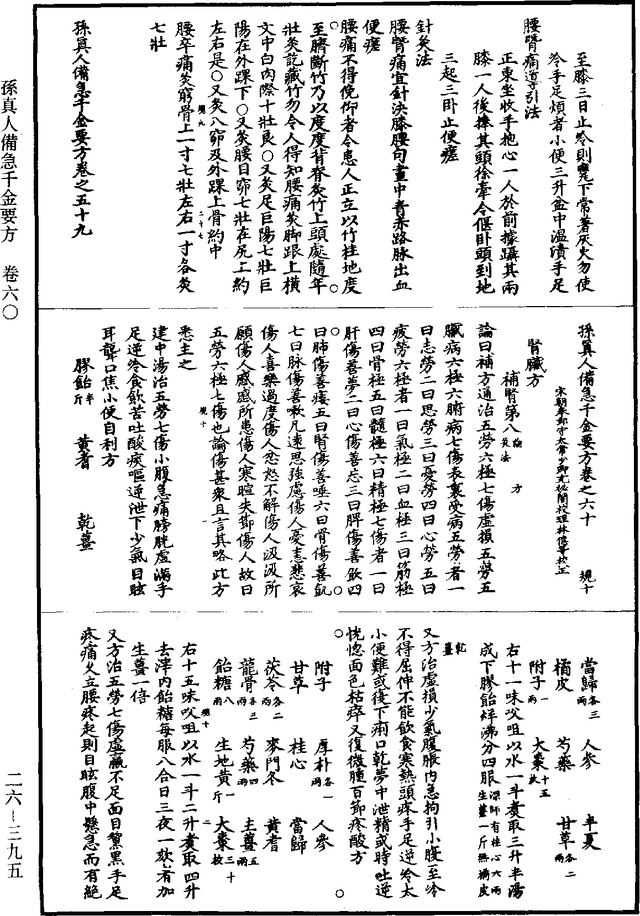 至膝三日止冷則
下常著灰火勿使
冷手足煩者小便三升盆中溫漬手足
腰腎痛導引法
正東坐收手抱心一人於前據躡其兩
膝一人後捧其頭徐牽令偃臥頭到地
三起三臥止便瘥
針灸法
腰腎痛宜針決膝腰句畫中青赤路脉出血
便瘥
腰痛不得俛仰者令患人正立以竹柱地度
至臍斷竹乃以度度背脊灸竹上頭處隨年
壯灸訖藏竹勿令人得知腰痛灸脚跟上橫
文中白肉際十壯良○又灸足巨陽七壯巨
陽在外踝下○又灸腰目窌七壯在尻上約
左右是○又灸八窌及外踝上骨約中
腰卒痛灸窮骨上一寸七壯左右一寸各灸
七壯
孫真人備急千金要方卷之五十九
孫真人備急千金要方卷之六十
腎臟方
補腎第八 論 方 灸法
論曰補方通治五勞六極七傷虛損五勞五
臟病六極六腑病七傷表裏受病五勞者一
曰志勞二曰思勞三曰憂勞四曰心勞五曰
疲勞六極者一曰氣極二曰血極三曰筋極
四曰骨極五曰髓極六曰精極七傷者一曰
肝傷善夢二曰心傷善忘三曰脾傷善飲四
曰肺傷善痿五曰腎傷善唾六曰骨傷善飢
七曰脉傷善嗽凡遠思強慮傷人憂恚悲哀
傷人喜樂過度傷人忿怒不解傷人汲汲所
願傷人慼慼所患傷人寒暄失節傷人故曰
五勞六極七傷也論傷甚衆且言其略此方
悉主之
建中湯治五勞七傷小腹急痛膀胱虛滿手
足逆冷食飲苦吐酸痰嘔逆泄下少氣目眩
耳聾口焦小便自利方
膠飴半斤 黃耆 乾薑
當歸各三兩 人參 半夏
橘皮 芍藥 甘草各二兩
附子一兩 大棗十五枚
右十一味㕮咀以水一斗煮取三升半湯
成下膠飴烊沸分四服深師有桂心六兩生薑一斤無橘皮
乾薑
又方治虛損少氣腹脹內急拘引小腹至冷
不得屈伸不能飲食寒熱頭疼手足逆冷大
小便難或復下痢口乾夢中泄精或時吐逆
恍惚面色枯瘁又復微腫百節疼酸方
附子 厚朴各一兩 人參
甘草 桂心 當歸
茯苓各二兩 麥門冬 黃耆
龍骨各三兩 芍藥四兩 生薑五兩
飴糖八兩 生地黃一斤 大棗三十
右十五味㕮咀以水一斗二升煮取四升
去滓內飴糖每服八合日三夜一欬者加
生薑一倍
又方治五勞七傷虛羸不足面目黧黑手足
疼痛久立腰疼起則目眩腹中懸急而有絕
孫真人備急千金要方 卷六○
二六—三九五